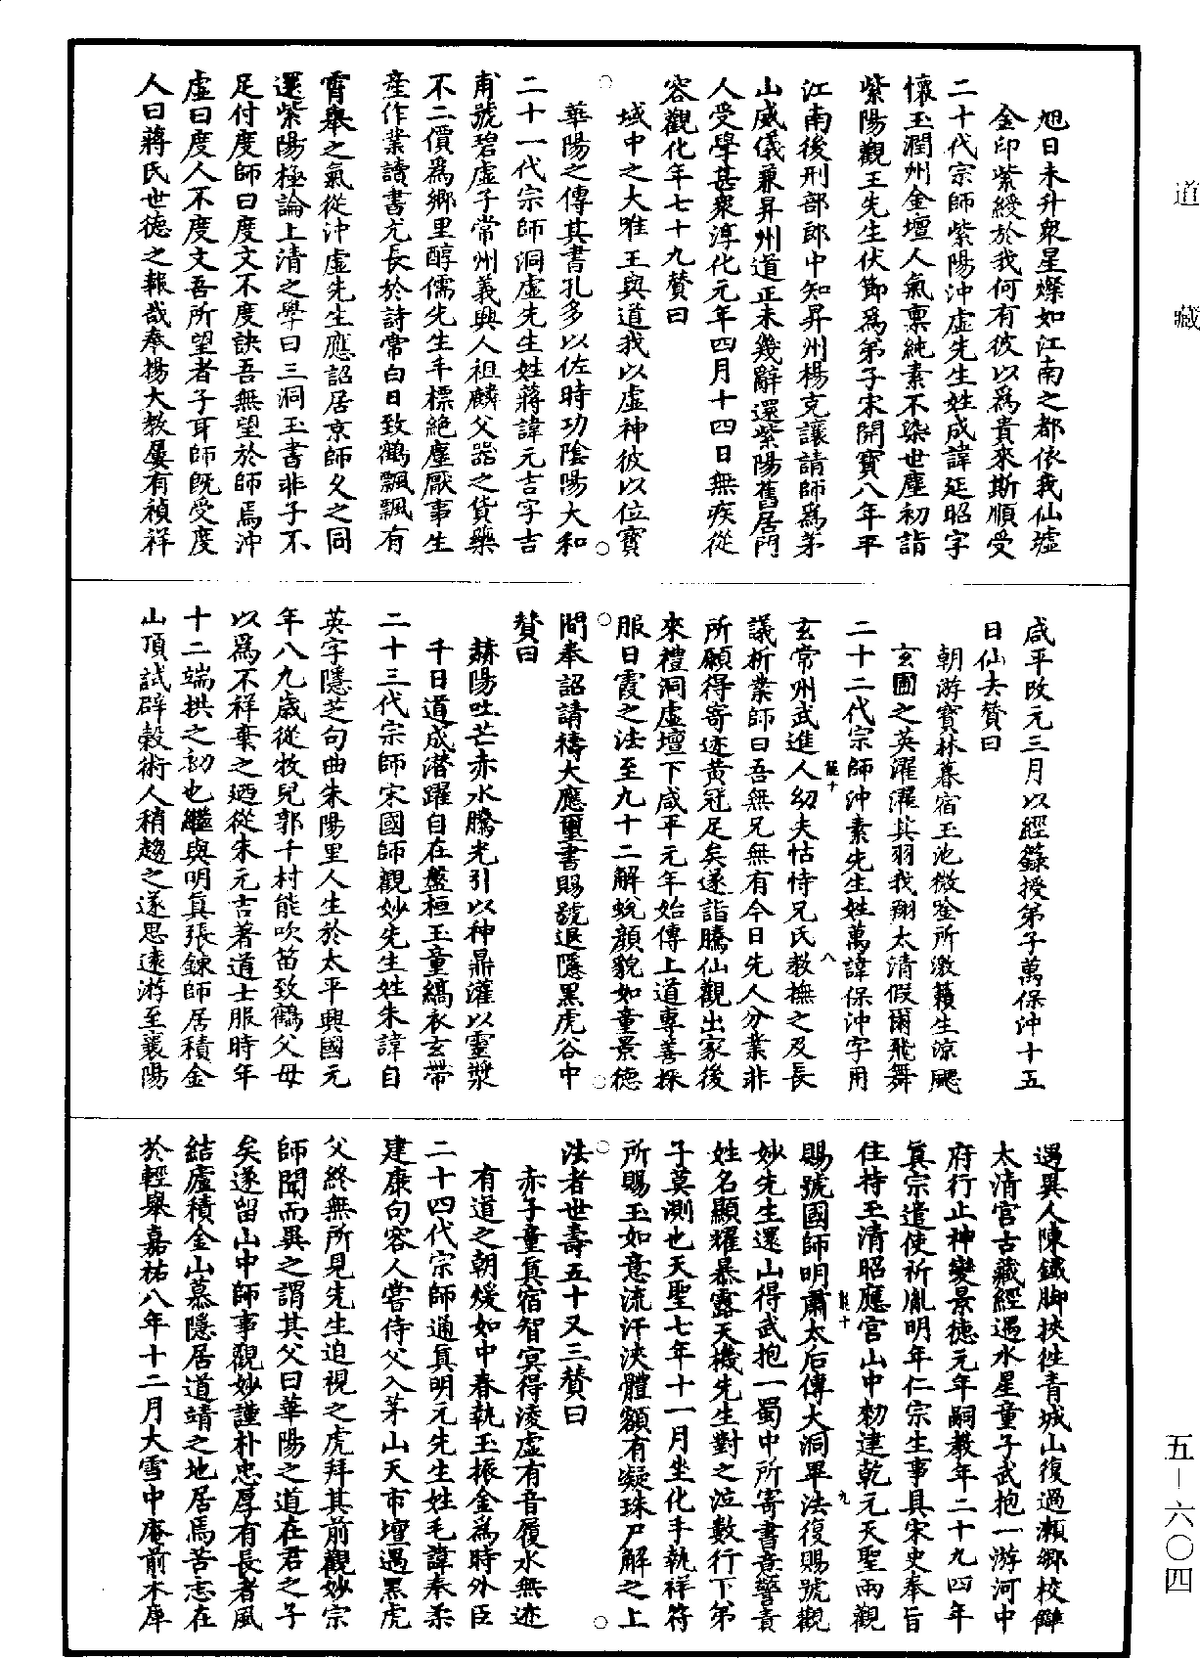 道藏
旭日未升衆星燦如江南之都依我仙墟
金印紫綬於我何有彼以爲貴來斯順受
二十代宗師紫陽沖虛先生姓成諱延昭字
懷玉潤州金壇人氣禀純素不染世塵初詣
紫陽觀王先生伏節爲弟子宋開寶八年平
江南後刑部郎中知昇州楊克讓請師爲茅
山威儀兼昇州道正未幾辭還紫陽舊居門
人受學甚衆淳化元年四月十四日無疾從
容觀化年七十九贊曰
域中之大唯王與道我以虛神彼以位寳
華陽之傳其書孔多以佐時功陰陽大和
二十一代宗師洞虛先生姓蔣諱元吉字吉
甫號碧虛子常州義興人祖麟父器之貨藥
不二價爲鄉里醇儒先生丰標絶塵厭事生
產作業讀書尤長於詩常白日致鶴飄飄有
霄舉之氣從沖虛先生應詔居京師久之同
還紫陽極論上清之學曰三洞玉書非子不
足付度師曰度文不度訣吾無望於師焉沖
虛曰度人不度文吾所望者子耳師既受度
人曰蔣氏世德之報哉奉揚大教屢有禎祥
咸平改元三月以經籙授弟子萬保沖十五
日仙去贊曰
朝游寶林暮宿玉池微唫所激籟生涼颸
玄圃之英濯濯其羽我翔太清假爾飛舞
二十二代宗師沖素先生姓萬諱保沖字用
玄常州武進人幼夫怙恃兄氏教撫之及長
議析業師曰吾無兄無有今日先人分業非
所願得寄迹黃冠足矣遂詣騰仙觀出家後
來禮洞虛壇下咸平元年始傳上道專善採
服日霞之法至九十二解蛻顏貌如童景德
間奉詔請禱大應璽書賜號退隱黑虎谷中
贊曰
赫陽吐芒赤水騰光引以神鼎灌以靈漿
千日道成潜躍自在盤桓玉童縞衣玄帶
二十三代宗師宋國師觀妙先生姓朱諱自
英字隱芝句曲朱陽里人生於太平興國元
年八九歲從牧兒郭千村能吹笛致鶴父母
以爲不祥棄之廼從朱元吉著道士服時年
十二端拱之初也繼與明真張錬師居積金
山頂試辟穀術人稍趨之遂思遠游至襄陽
遇異人陳鐵脚挾徃青城山復過瀨鄉校讎
太清宮古藏經遇水星童子武抱一游河中
府行止神變景德元年嗣教年二十九四年
真宗遣使祈胤明年仁宗生事具宋史奉旨
住持玉清昭應宫山中勅建乾元天聖兩觀
賜號國師明肅太后傳大洞畢法復賜號觀
妙先生還山得武抱一蜀中所寄書意警責
姓名顯耀暴露天機先生對之泣數行下弟
子莫測也天聖七年十一月坐化手執祥符
所賜玉如意流汗浹體額有凝珠尸解之上
法者世壽五十又三贊曰
赤子童真宿智冥得淩虛有音履水無迹
有道之朝煖如中春執玉振金爲時外臣
二十四代宗師通真明元先生姓毛諱奉柔
建康句容人嘗侍父入茅山天市壇遇黑虎
父終無所見先生迫視之虎拜其前觀妙宗
師聞而異之謂其父曰華陽之道在君之子
矣遂留山中師事觀妙謹朴忠厚有長者風
結廬積金山慕隱居道靖之地居焉苦志在
於輕舉嘉祐八年十二月大雪中庵前木犀
五－六〇四